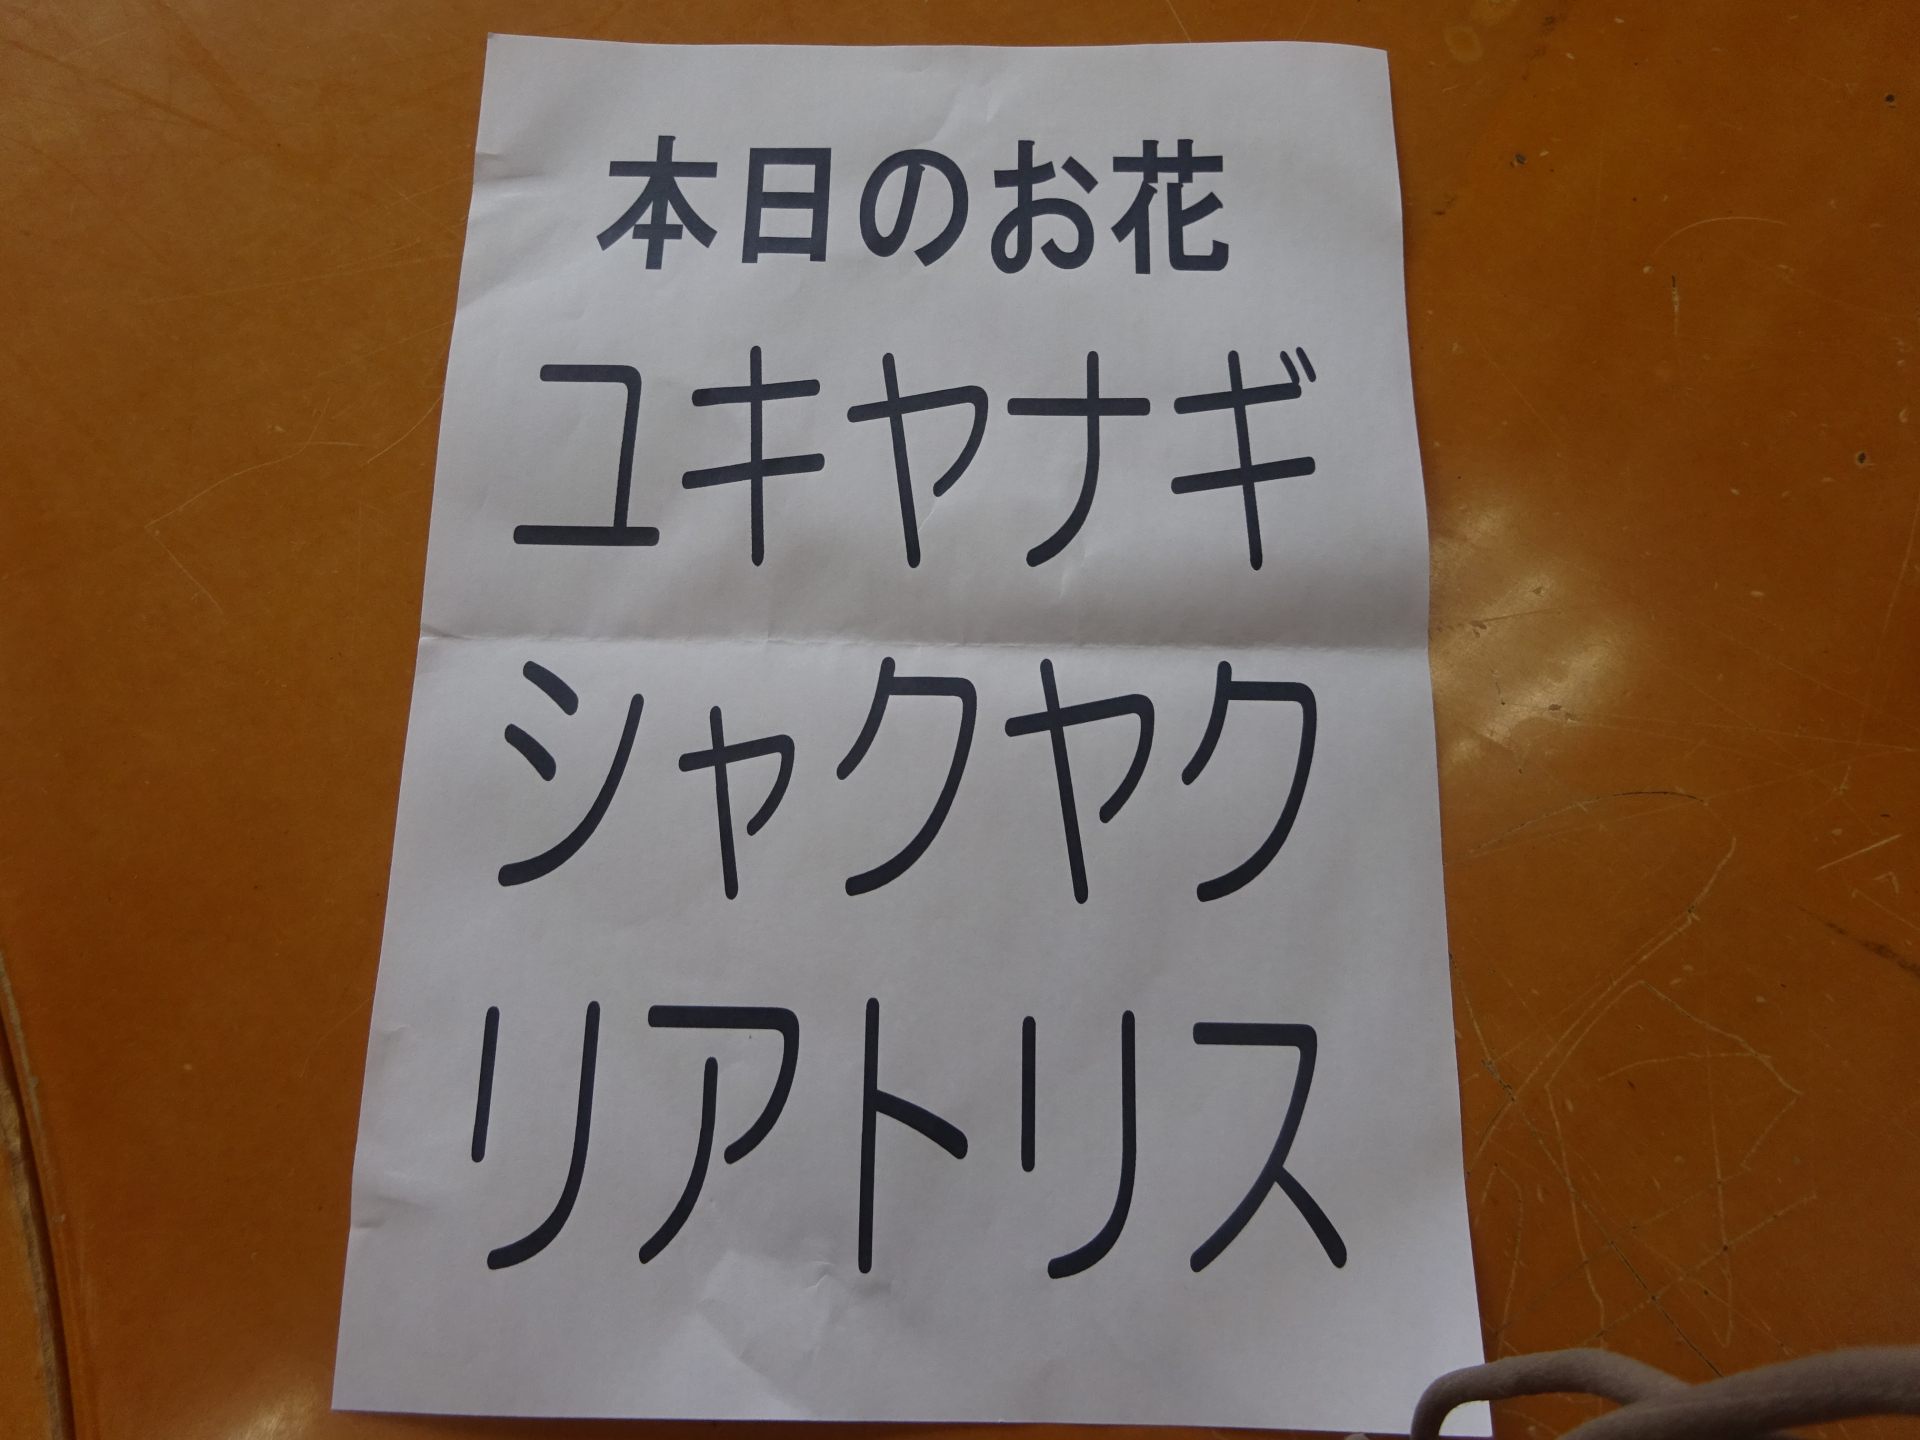 本日のお花
ユキヤナギ
シャクヤク
リアトリス